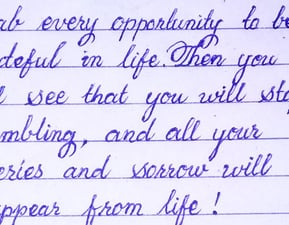 ab every opportunity to be
ateful in life. Then you
l see that you will sto
mbling, and all your
eries and sorrow will
appear from life !